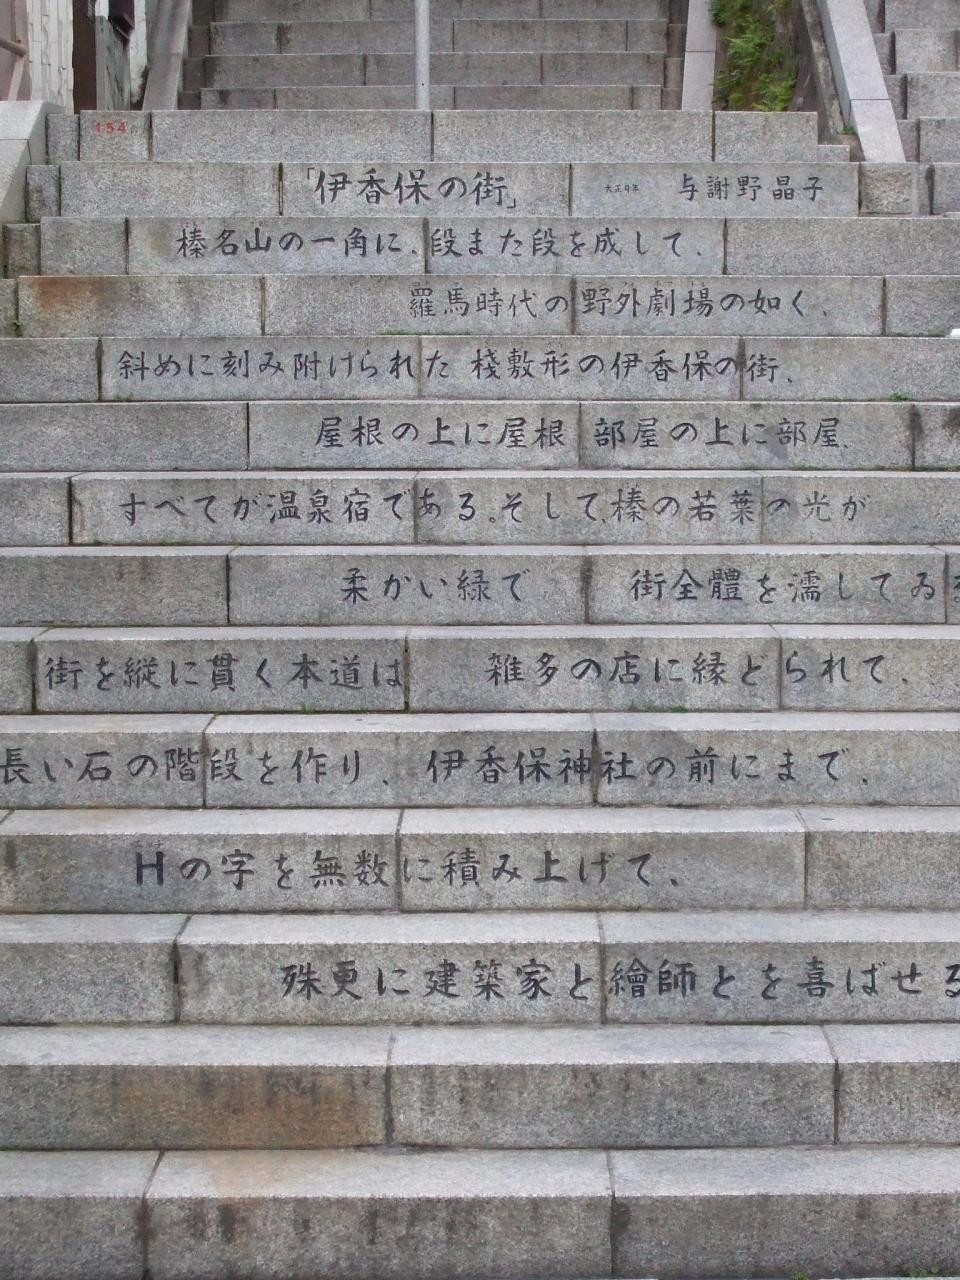 154
「伊香保の街」 大正9年 与謝野晶子
榛名山の一角に、段また段を成して、
羅馬時代の野外劇場の如く、
斜めに刻み附けられた 桟敷形の伊香保の街、
屋根の上に屋根 部屋の上に部屋、
すべてが温泉宿である。そして、榛の若葉の光が
柔かい緑で 街全體を濡してゐる
街を縦に貫く本道は 雑多の店に縁どられて、
長い石の階段を作り、伊香保神社の前にまで、
Hの字を無数に積み上げて、
殊更に建築家と繪師とを喜ばせる